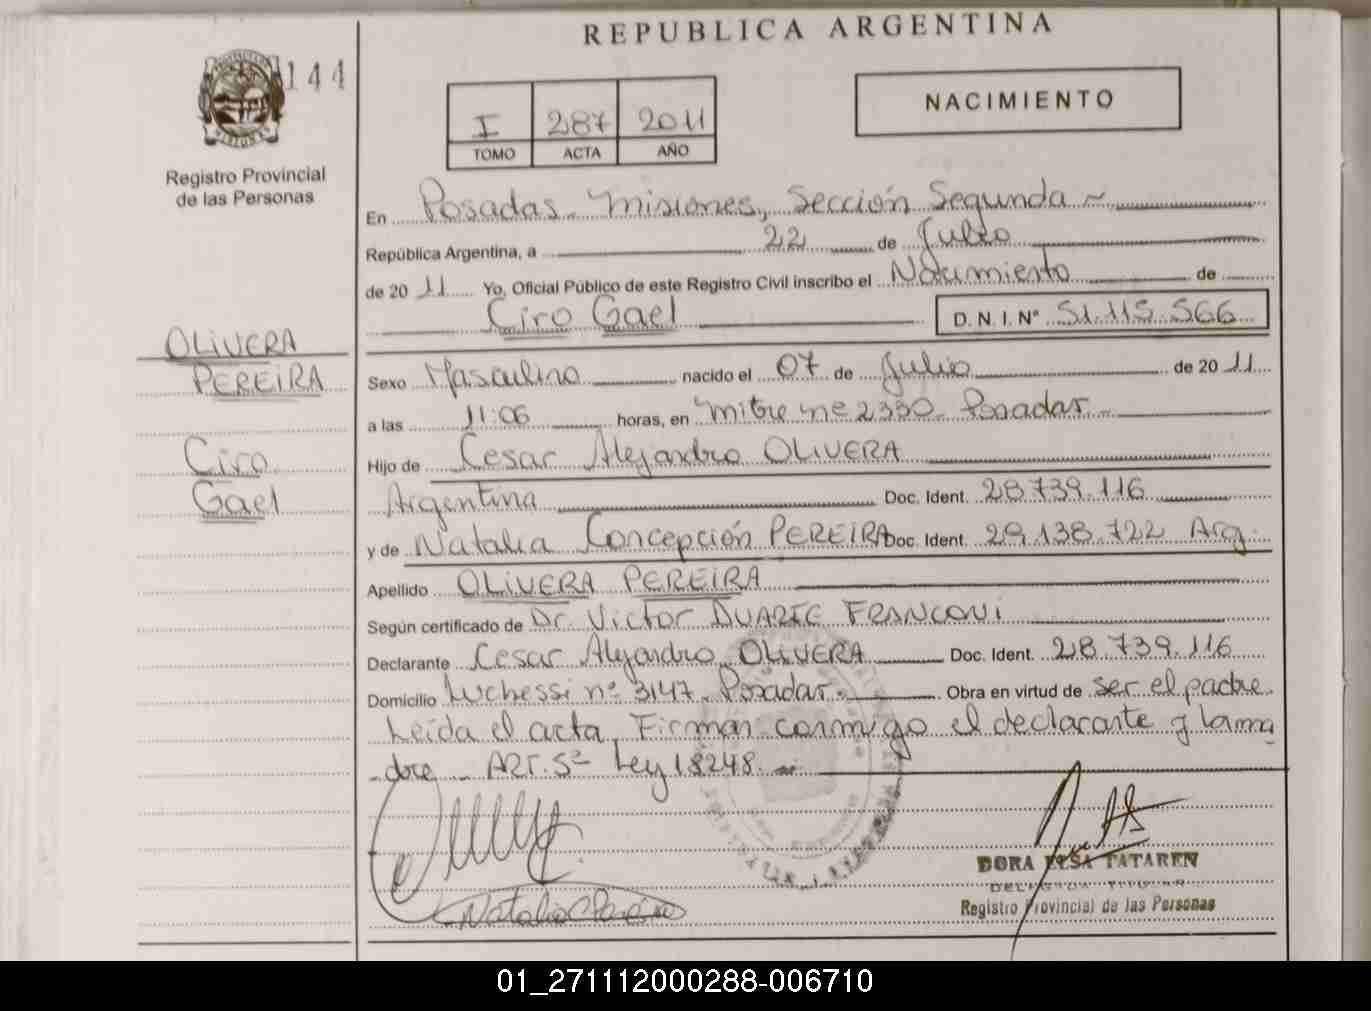 REPUBLICA ARGENTINA
144
I 287 2011
TOMO ACTA AÑO
NACIMIENTO
Registro Provincial
de las Personas
En Posadas Misiones, Sección Segunda
República Argentina, a 22 de Julio
de 20 11 Yo, Oficial Público de este Registro Civil inscribo el Nacimiento de
Ciro Gael D.N.I. Nº 51.115.566
OLIVERA
PEREIRA
Ciro
Gael
Sexo Masculino nacido el 07 de Julio de 20 11
a las 11:06 horas, en Mitre nº 2330 Posadas
Hijo de Cesar Alejandro OLIVERA
Argentina Doc. Ident. 28.739.116
y de Natalia Concepción PEREIRA Doc. Ident. 29.138.722 Arg.
Apellido OLIVERA PEREIRA
Según certificado de Dr. Victor DUARTE
Declarante Cesar Alejandro OLIVERA Doc. Ident. 28.739.116
Domicilio nº 3147 Posadas Obra en virtud de ser el padre
Leída el acta, Firman conmigo el declarante y la ma
-dre - ART. 5º Ley 18248.
DORA ELSA TATAREN
DELEGADA TITULAR
Registro Provincial de las Personas
Natalia C Pereira
01_271112000288-006710